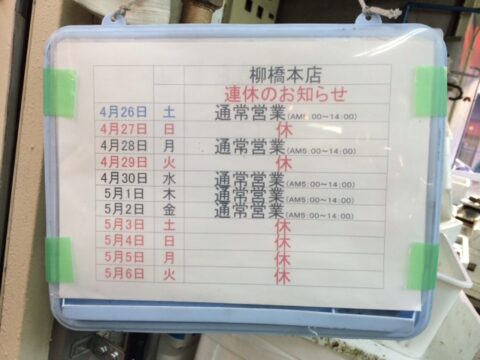 柳橋本店
連休のお知らせ
4月26日 土 通常営業(AM5:00~14:00)
4月27日 日 休
4月28日 月 通常営業(AM5:00~14:00)
4月29日 火 休
4月30日 水 通常営業(AM5:00~14:00)
5月1日 木 通常営業(AM5:00~14:00)
5月2日 金 通常営業(AM5:00~14:00)
5月3日 土 休
5月4日 日 休
5月5日 月 休
5月6日 火 休